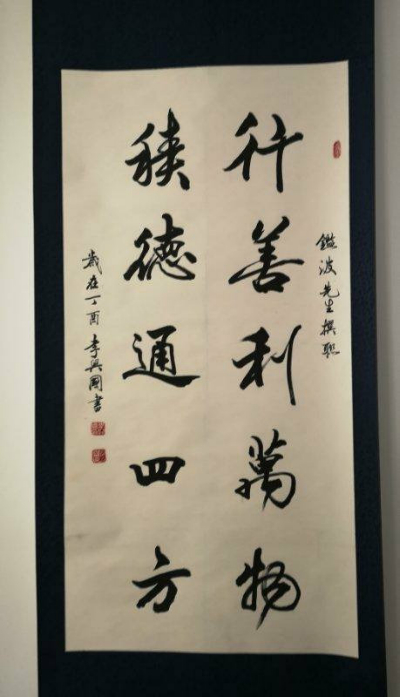 鑑波先生撰聯
行善利萬物
積德通四方
歲在丁酉李興國書